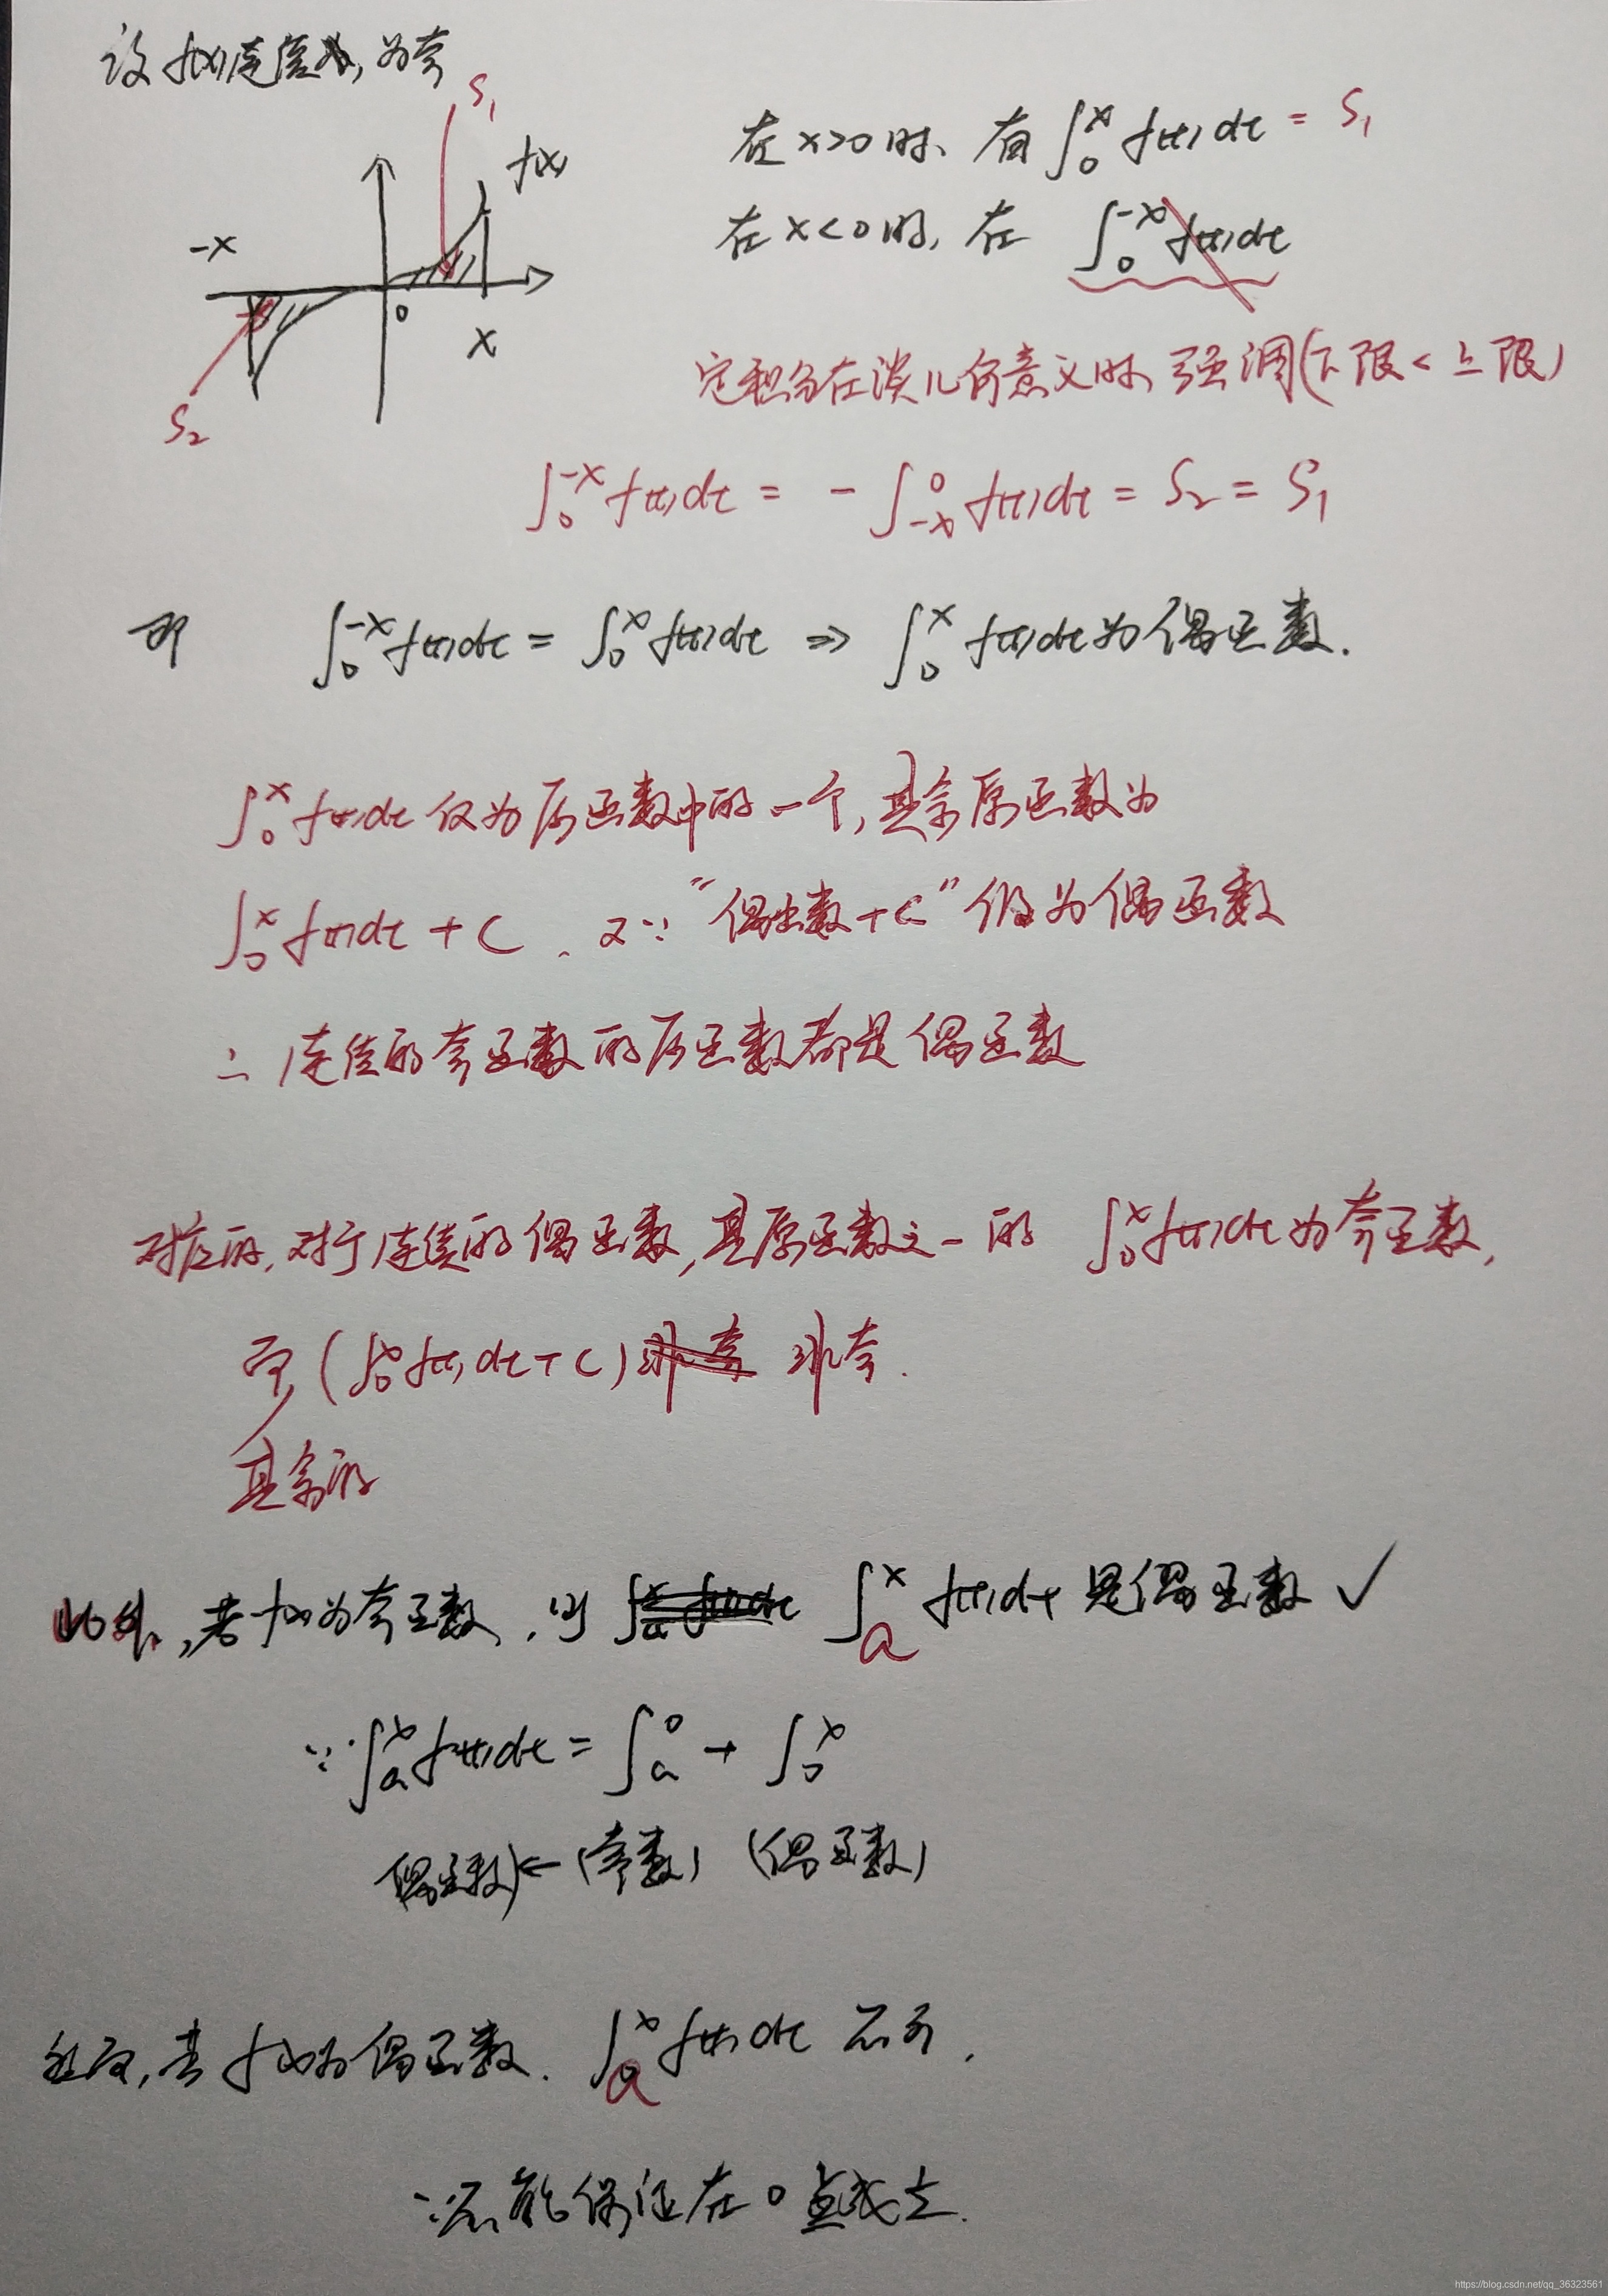 设f(x)连续, 为奇
S₁
f(x)
-x
0
x
S₂
在x>0时、有∫₀ˣ f(t)dt = S₁
在x<0时, 在 ∫₀⁻ˣ f(t)dt
定积分在谈几何意义时、强调(下限<上限)
∫₀⁻ˣ f(t)dt = -∫₋ₓ⁰ f(t)dt = S₂ = S₁
即 ∫₀⁻ˣ f(t)dt = ∫₀ˣ f(t)dt ⇒ ∫₀ˣ f(t)dt为偶函数.
∫₀ˣ f(t)dt 仅为原函数中的一个, 其余原函数为
∫₀ˣ f(t)dt + C 、又∵ "偶函数+C" 仍为偶函数
∴ 连续的奇函数的原函数都是偶函数
对应的, 对于连续的偶函数, 其原函数之一的 ∫₀ˣ f(t)dt 为奇函数,
而 (∫₀ˣ f(t)dt+C) 非奇.
其余的
此外, 若f(x)为奇函数、, 则 ∫ₐˣ f(t)dt 是偶函数 ✓
∵ ∫ₐˣ f(t)dt = ∫ₐ⁰ + ∫₀ˣ
偶函数 ← (常数) (偶函数)
然而, 若f(x)为偶函数. ∫ₐˣ f(t)dt 不行.
∵不能保证在0点成立.
https://blog.csdn.net/qq_36323561